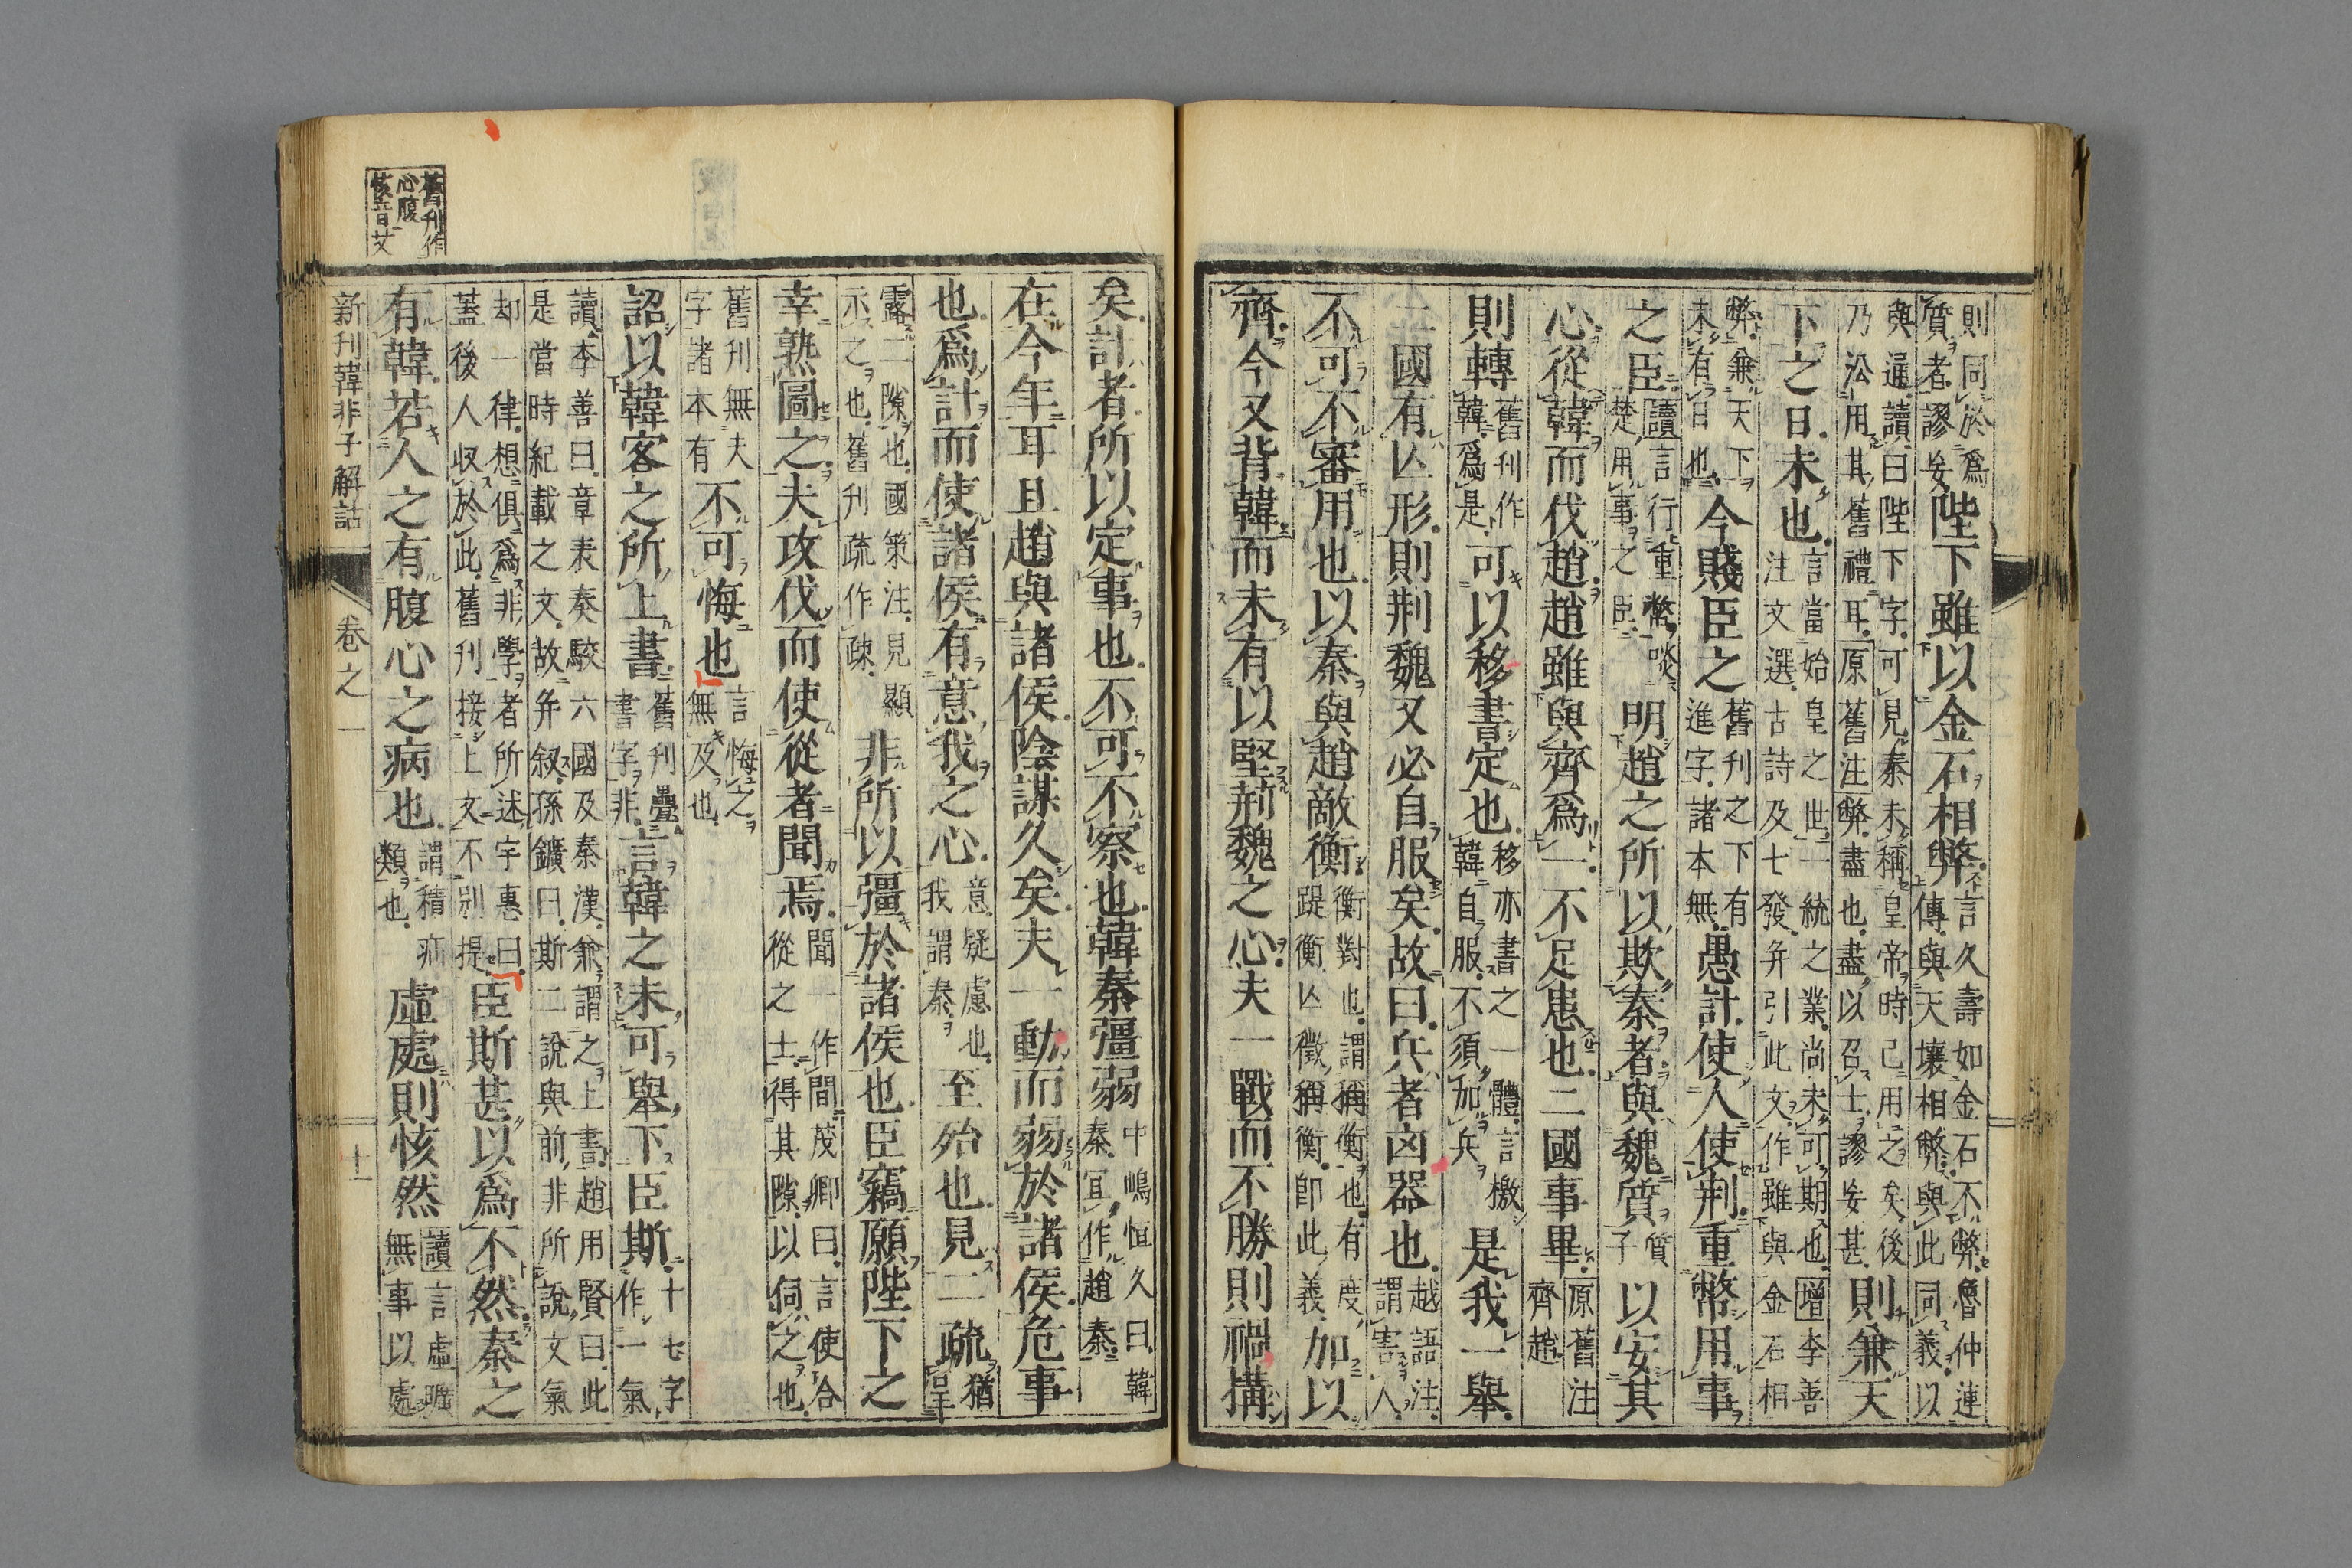 則同於爲質者謬妄陛下雖以金石相弊言久壽如金石不弊魯仲連傳與天壤相弊與此同義以
與通讀曰陛下字可見秦未稱皇帝時已用之矣後乃沿用其舊禮耳原舊注弊盡也盡以召士謬妄甚則兼天
下之日未也言當始皇之世一統之業尚未可期也增李善注文選古詩及七發弁引此文作雖與金石相
弊兼天下未有日也今賤臣之舊刊之下有進字諸本無愚計使人使荆重幣用事
之臣讀言行重幣啖楚用事之臣明趙之所以欺秦者與魏質質子以安其
心從韓而伐趙趙雖與齊爲一不足患也二國事畢原舊注齊趙
則轉舊刊作韓爲是可以移書定也移亦書之一體言檄韓自服不須加兵是我一舉
二國有亾形則荆魏又必自服矣故曰兵者凶器也越語注謂害人
不可不審用也以秦與趙敵衡衡對也謂稱衡也有度踶衡亾徵稱衡卽此義加以
齊今又背韓而未有以堅荊魏之心夫一戰而不勝則禍搆
矣計者所以定事也不可不察也韓秦彊弱中嶋恒久曰韓秦冝作趙秦
在今年耳且趙與諸侯陰謀久矣夫一動而弱於諸侯危事
也爲計而使諸侯有意我之心意疑慮也我謂秦至殆也見二疏猶呈
露二隙也國策注見顯示之也舊刊疏作疎非所以彊於諸侯也臣竊願陛下之
幸熟圖之夫攻伐而使從者聞焉聞一作間茂卿曰言使合從之士得其隙以伺之也
舊刊無夫字諸本有不可悔也言悔之無及也
詔以韓客之所上書舊刊疊書字非言韓之未可舉下臣斯十七字作一氣
讀李善曰章表奏駮六國及秦漢兼謂之上書趙用賢曰此是當時紀載之文故弁叙孫鑛曰斯二說與前非所說文氣
却一律想俱爲非學者所述宇惠曰蓋後人収於此舊刊接上文不別提臣斯甚以爲不然秦之
有韓若人之有腹心之病也謂積病類也虛處則㤥然讀言虛曠無事以處
新刊韓非子解詁 卷之一 十一
舊刊作心腹㤥音艾